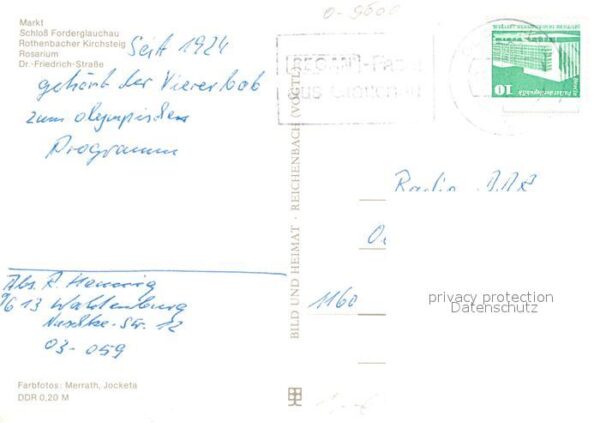 Markt
Schloß Forderglauchau
Rothenbacher Kirchsteig
Rosarium
Dr.-Friedrich-Straße
Seit 1924
gehört der Viererbob
zum olympischen
Programm
Abs. R.
9613 Waldenburg
Str. 12
03-059
Farbfotos: Merrath, Jocketa
DDR 0,20 M
BILD UND HEIMAT · REICHENBACH (VOGTL
0-9600
aus
10
Radio DDR
1160
privacy protection
Datenschutz